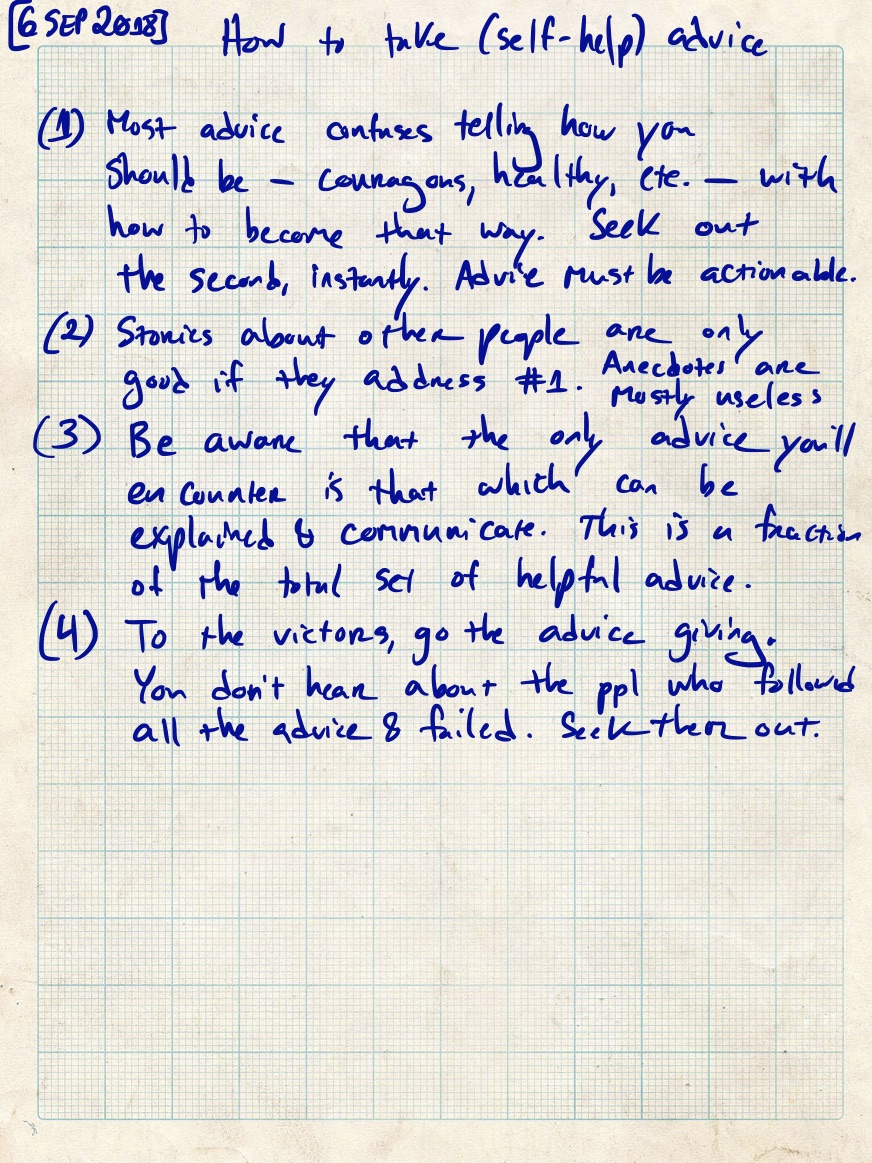 [6 SEP 2018]
How to take (self-help) advice
(1) Most advice confuses telling how you
should be — couragous, healthy, etc. — with
how to become that way. Seek out
the second, instantly. Advice must be actionable.
(2) Stories about other people are only
good if they address #1. Anecdotes are
mostly useless
(3) Be aware that the only advice you'll
encounter is that which can be
explained & communicate. This is a fraction
of the total set of helpful advice.
(4) To the victors, go the advice giving.
You don't hear about the ppl who followed
all the advice & failed. Seek them out.